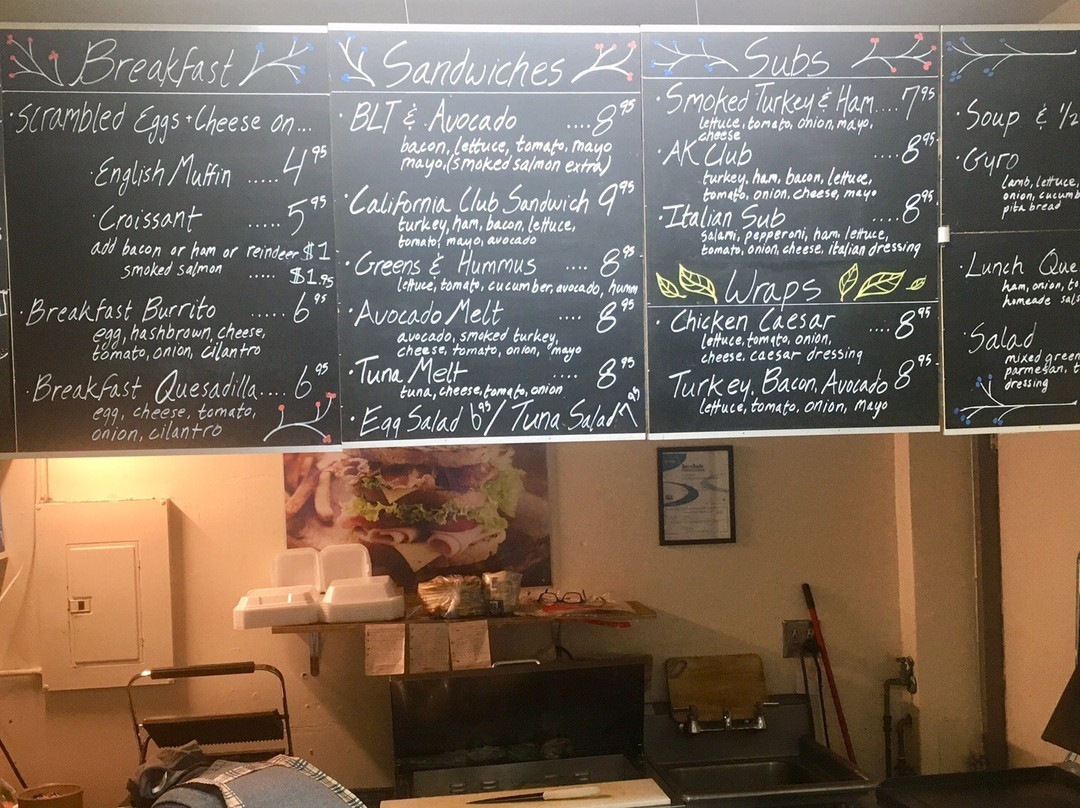 Breakfast
·Scrambled Eggs+Cheese on...
·English Muffin .....4⁹⁵
·Croissant .....5⁹⁵
add bacon or ham or reindeer $1
smoked salmon ..... $1.⁹⁵
·Breakfast Burrito .....6⁹⁵
egg, hashbrown, cheese,
tomato, onion, cilantro
·Breakfast Quesadilla....6⁹⁵
egg, cheese, tomato,
onion, cilantro
Sandwiches
·BLT & Avocado ....8⁹⁵
bacon, lettuce, tomato, mayo
mayo,(smoked salmon extra)
·California Club Sandwich 9⁹⁵
turkey, ham, bacon, lettuce,
tomato, mayo, avocado
·Greens & Hummus ....8⁹⁵
lettuce, tomato, cucumber, avocado, humm
·Avocado Melt ....8⁹⁵
avocado, smoked turkey,
cheese, tomato, onion, mayo
·Tuna Melt ....8⁹⁵
tuna, cheese, tomato, onion
·Egg Salad 6⁹⁵/ Tuna Salad 7⁹⁵
Subs
·Smoked Turkey & Ham....7⁹⁵
lettuce, tomato, onion, mayo,
cheese
·AK Club ....8⁹⁵
turkey, ham, bacon, lettuce,
tomato, onion, cheese, mayo
·Italian Sub ....8⁹⁵
salami, pepperoni, ham, lettuce,
tomato, onion, cheese, italian dressing
Wraps
·Chicken Caesar ....8⁹⁵
lettuce, tomato, onion,
cheese, caesar dressing
Turkey, Bacon, Avocado 8⁹⁵
lettuce, tomato, onion, mayo
·Soup & 1/2
·Gyro
lamb, lettuce,
onion, cucumb
pita bread
·Lunch Que
ham, onion, to
homeade sals
·Salad
mixed green
parmesan, t
dressing